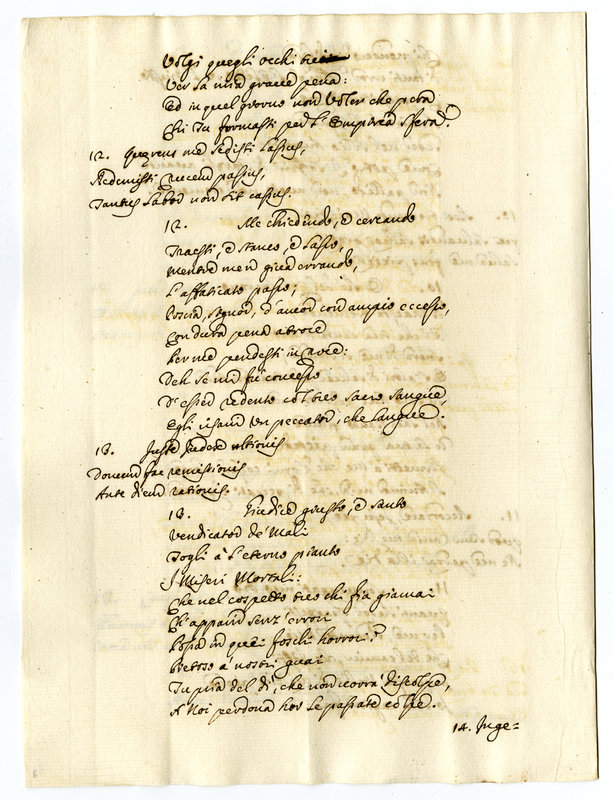 Volgi quegli occhi tuoi
Ver la mia grave pena:
Ed in quel giorno non voler che pera
Chi Tu formasti per l' Empirea sfera.
12. Querens me sedisti lassus,
Redemisti crucem passus,
Tantus labor non sit cassus.
12. Me chiedendo, e cercando
Traesti, e stanco, e lasso,
Mentre men giva errando,
L'affaticato passo;
Poscia, Signor, d'amor con ampio eccesso,
Con dura pena atroce
Per me pendesti in Croce:
Deh se mi fù concesso
D'esser redento col tuo sacro sangue,
Egli risani un peccator, che langue.
13. Juste Judex ultionis
Donum fac remissionis
Ante diem rationis.
13. Giudice giusto, e santo
Vendicator de' Mali
Togli à l'eterno pianto
I Miseri Mortali:
Che nel cospetto tuo chi fia giamai
Ch' appaia senz' errori
in quei foschi horrori?
Pietoso a' nostri guai
Tu pria del dì, che non udrà discolpe,
A Noi perdona hor le passate colpe.
14. Inge=